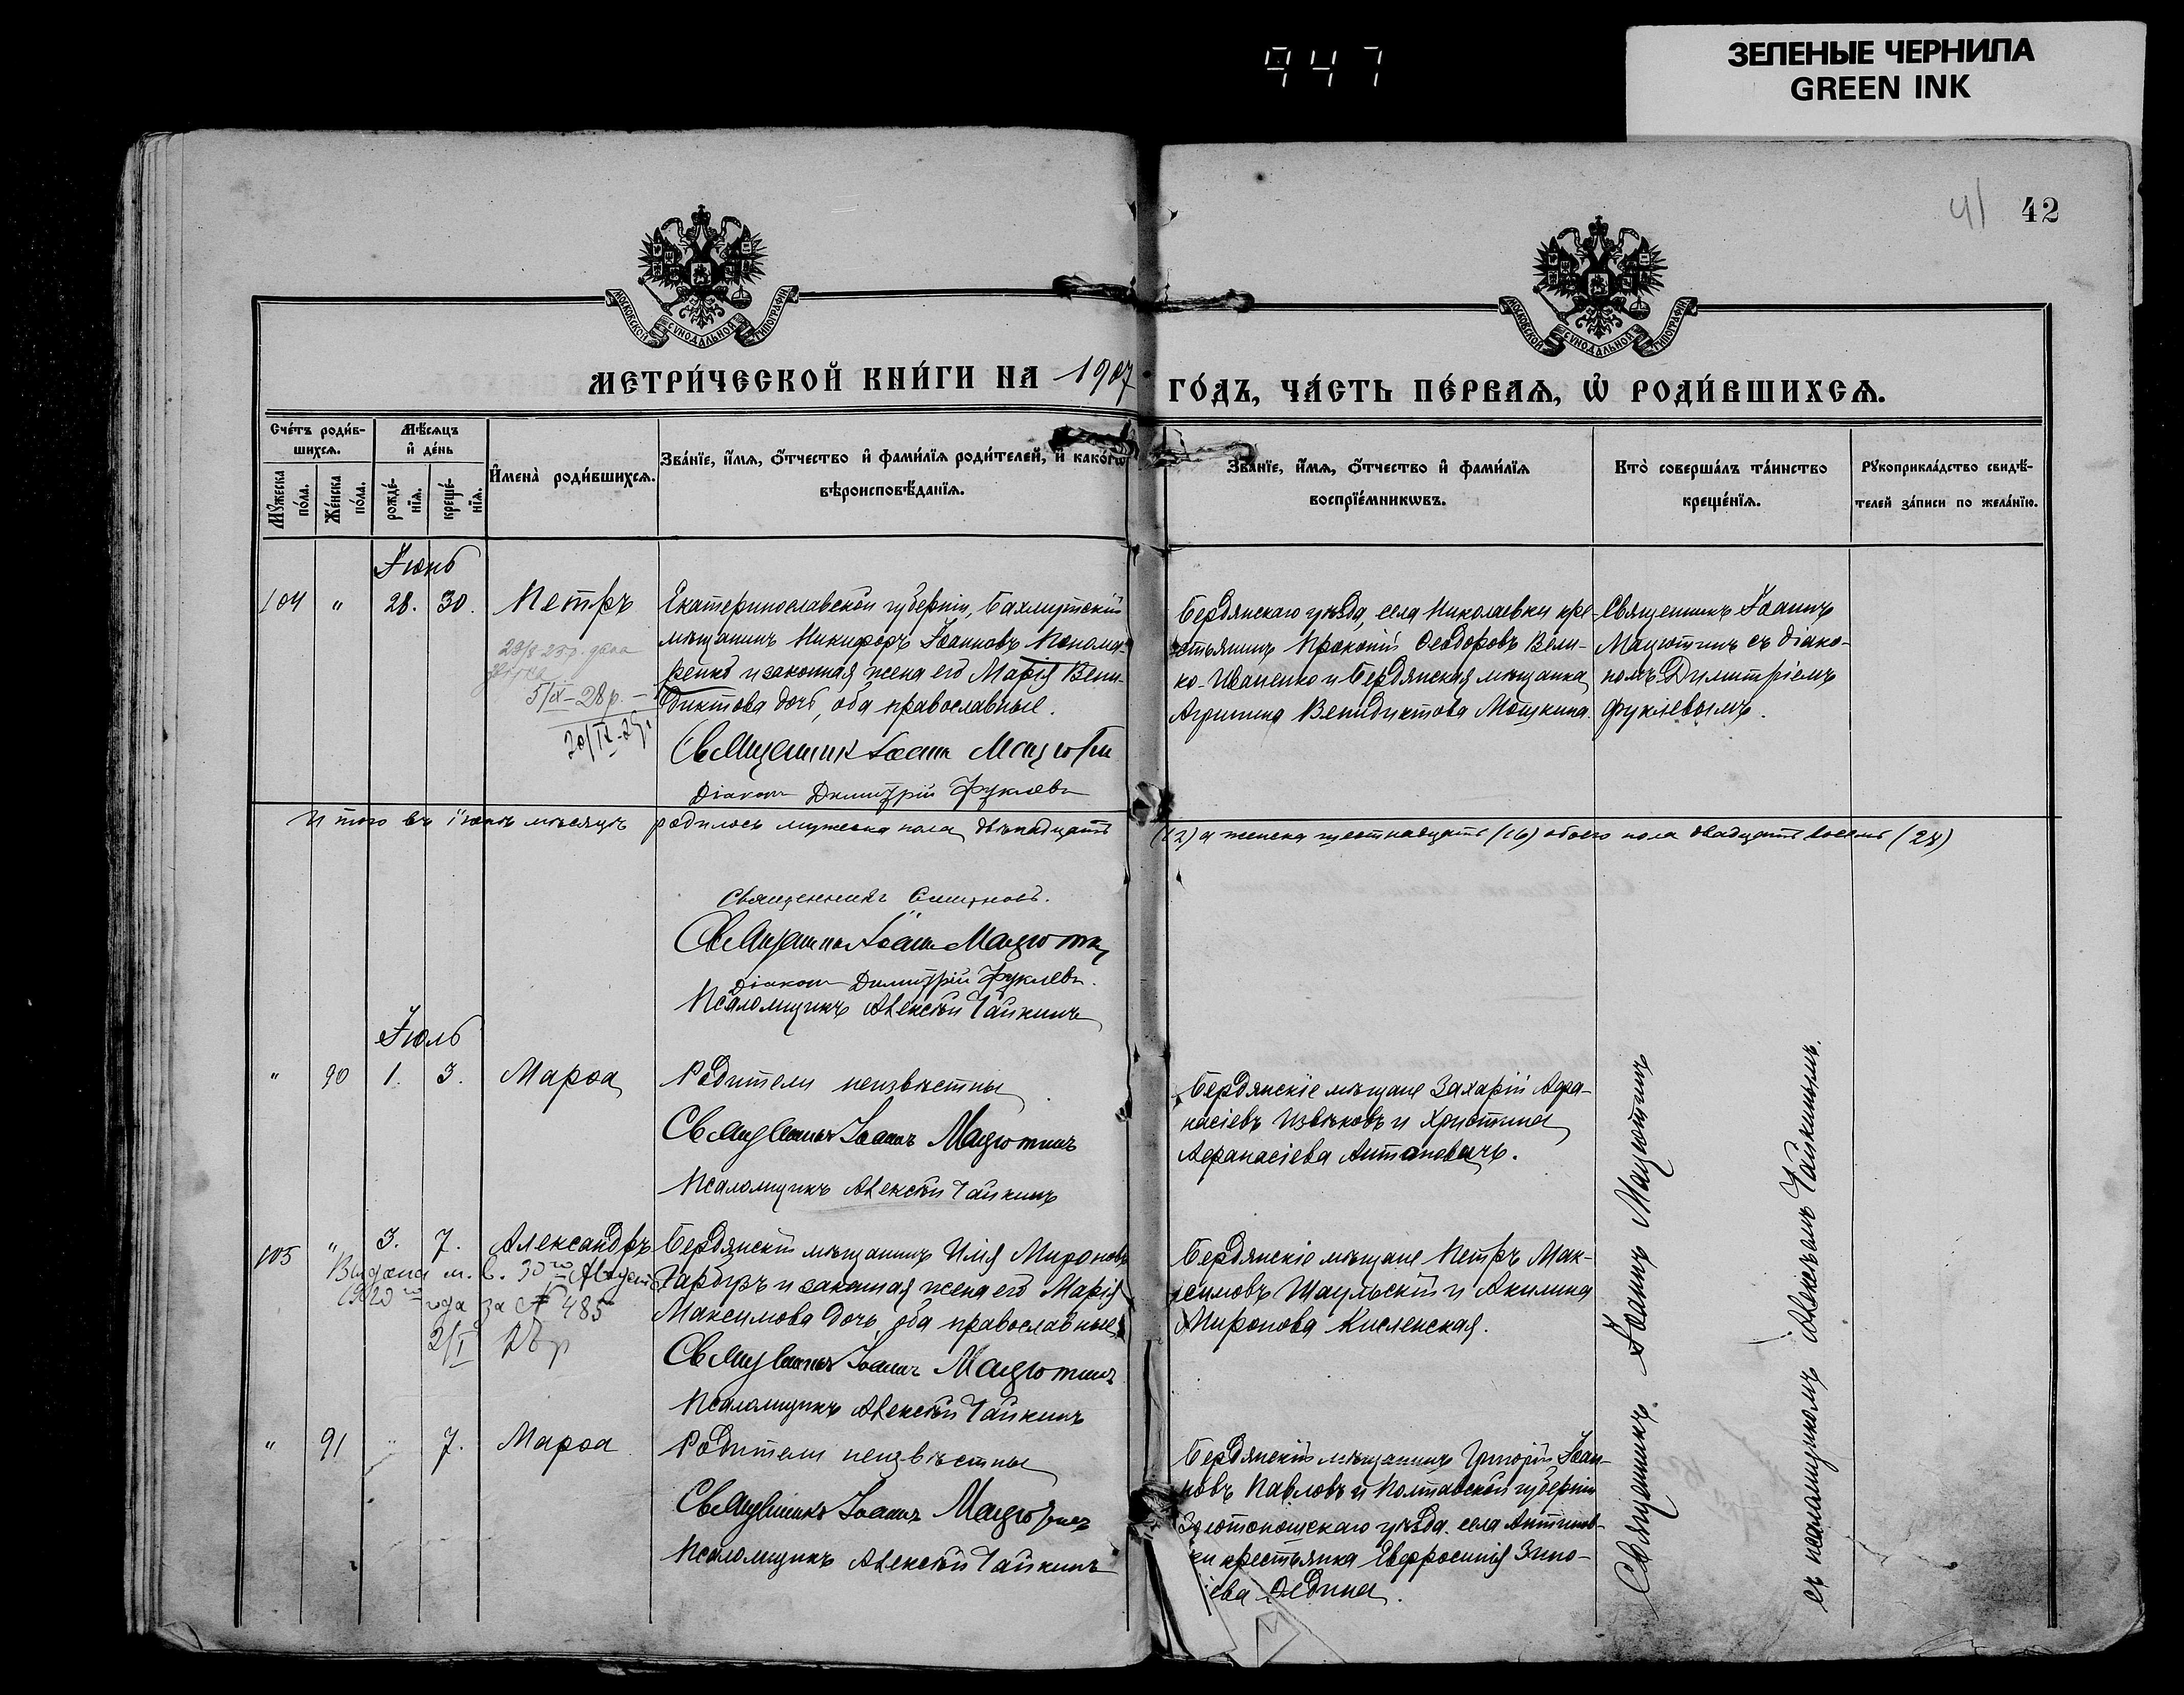 947
ЗЕЛЕНЫЕ ЧЕРНИЛА
GREEN INK
41 42
МОСКОВСКОЙ СѴНОДАЛЬНОЙ ТИПОГРАФІИ
МОСКОВСКОЙ СѴНОДАЛЬНОЙ ТИПОГРАФІИ
МЕТРИ́ЧЕСКОЙ КНИ́ГИ НА 1907 ГО́ДЪ, ЧА́СТЬ ПЕ́РВАѦ, Ѡ҆ РОДИ́ВШИХСѦ.
Сче́тъ роди́в-
шихсѧ.
Мꙋжеска по́ла.
Же́нска по́ла.
Мѣ́сѧцъ
и҆ де́нь
рожде́-
нїѧ.
креще́-
нїѧ.
И҆мена̀ роди́вшихсѧ.
Зва́нїе, и҆́мѧ, ѻ҆́тчество и҆ фами́лїѧ роди́телей, и҆ како́гѡ
вѣроисповѣ́данїѧ.
Зва́нїе, и҆́мѧ, ѻ҆́тчество и҆ фами́лїѧ
воспрїе́мникѡвъ.
Кто̀ соверша́лъ та́инство
креще́нїѧ.
Рꙋкоприкла́дство свидѣ́-
телей за́писи по жела́нїю.
Іюнь
104 " 28. 30. Петръ
5/IX-28 р. -
20/IX-29
Екатеринославской губерніи, Бахмутскій
мѣщанинъ Никифоръ Іоанновъ Понома-
ренко и законная жена его Марія Вени-
диктова дочь, оба православные.
Священник Іоанн Мацютин
Діаконъ Димитрій Фуклевъ
Бердянскаго уѣзда, села Николаевки кре-
стьянинъ Прокопій Ѳеодоровъ Вели-
ко-Иваненко и Бердянская мѣщанка
Агрипина Венидиктова Мошкина.
Священникъ Іоаннъ
Мацютинъ съ діако-
номъ Димитріемъ
Фуклевымъ.
Итого въ іюнѣ мѣсяцѣ родилось мужеска пола двѣнадцать (12) а женска шестнадцать (16) обоего пола двадцать восемь (28)
Священникъ Смирновъ.
Священник Іоанн Мацютин
Діаконъ Димитрій Фуклевъ.
Псаломщикъ Алексѣй Чайкинъ
Іюль
" 90 1. 3. Марѳа
Родители неизвѣстны
Священникъ Іоаннъ Мацютинъ
Псаломщикъ Алексѣй Чайкинъ
Бердянскіе мѣщане Захарій Афа-
насіевъ Извѣковъ и Христина
Афанасіева Антоновичъ.
105 " 3. 7. Александръ
Выдана м. в. 30го Август
1920го года за № 485
2/I 28 р
Бердянскій мѣщанинъ Илія Мироновъ
Гарбузъ и законная жена его Марія
Максимова дочь, оба православные
Священникъ Іоаннъ Мацютинъ
Псаломщикъ Алексѣй Чайкинъ
Бердянскіе мѣщане Петръ Мак-
симовъ Шаульскій и Акилина
Миронова Кисленская.
" 91 " 7. Марѳа
Родители неизвѣстны
Священникъ Іоаннъ Мацютинъ
Псаломщикъ Алексѣй Чайкинъ
Бердянскій мѣщанинъ Григорій Іоан-
новъ Павловъ и Полтавской губерніи
Золотоношскаго уѣзда села Антипов-
ки крестьянка Евфросинія Зино-
віева Дедина.
Священникъ Іоаннъ Мацютинъ
съ псаломщикомъ Алексѣемъ Чайкинымъ.